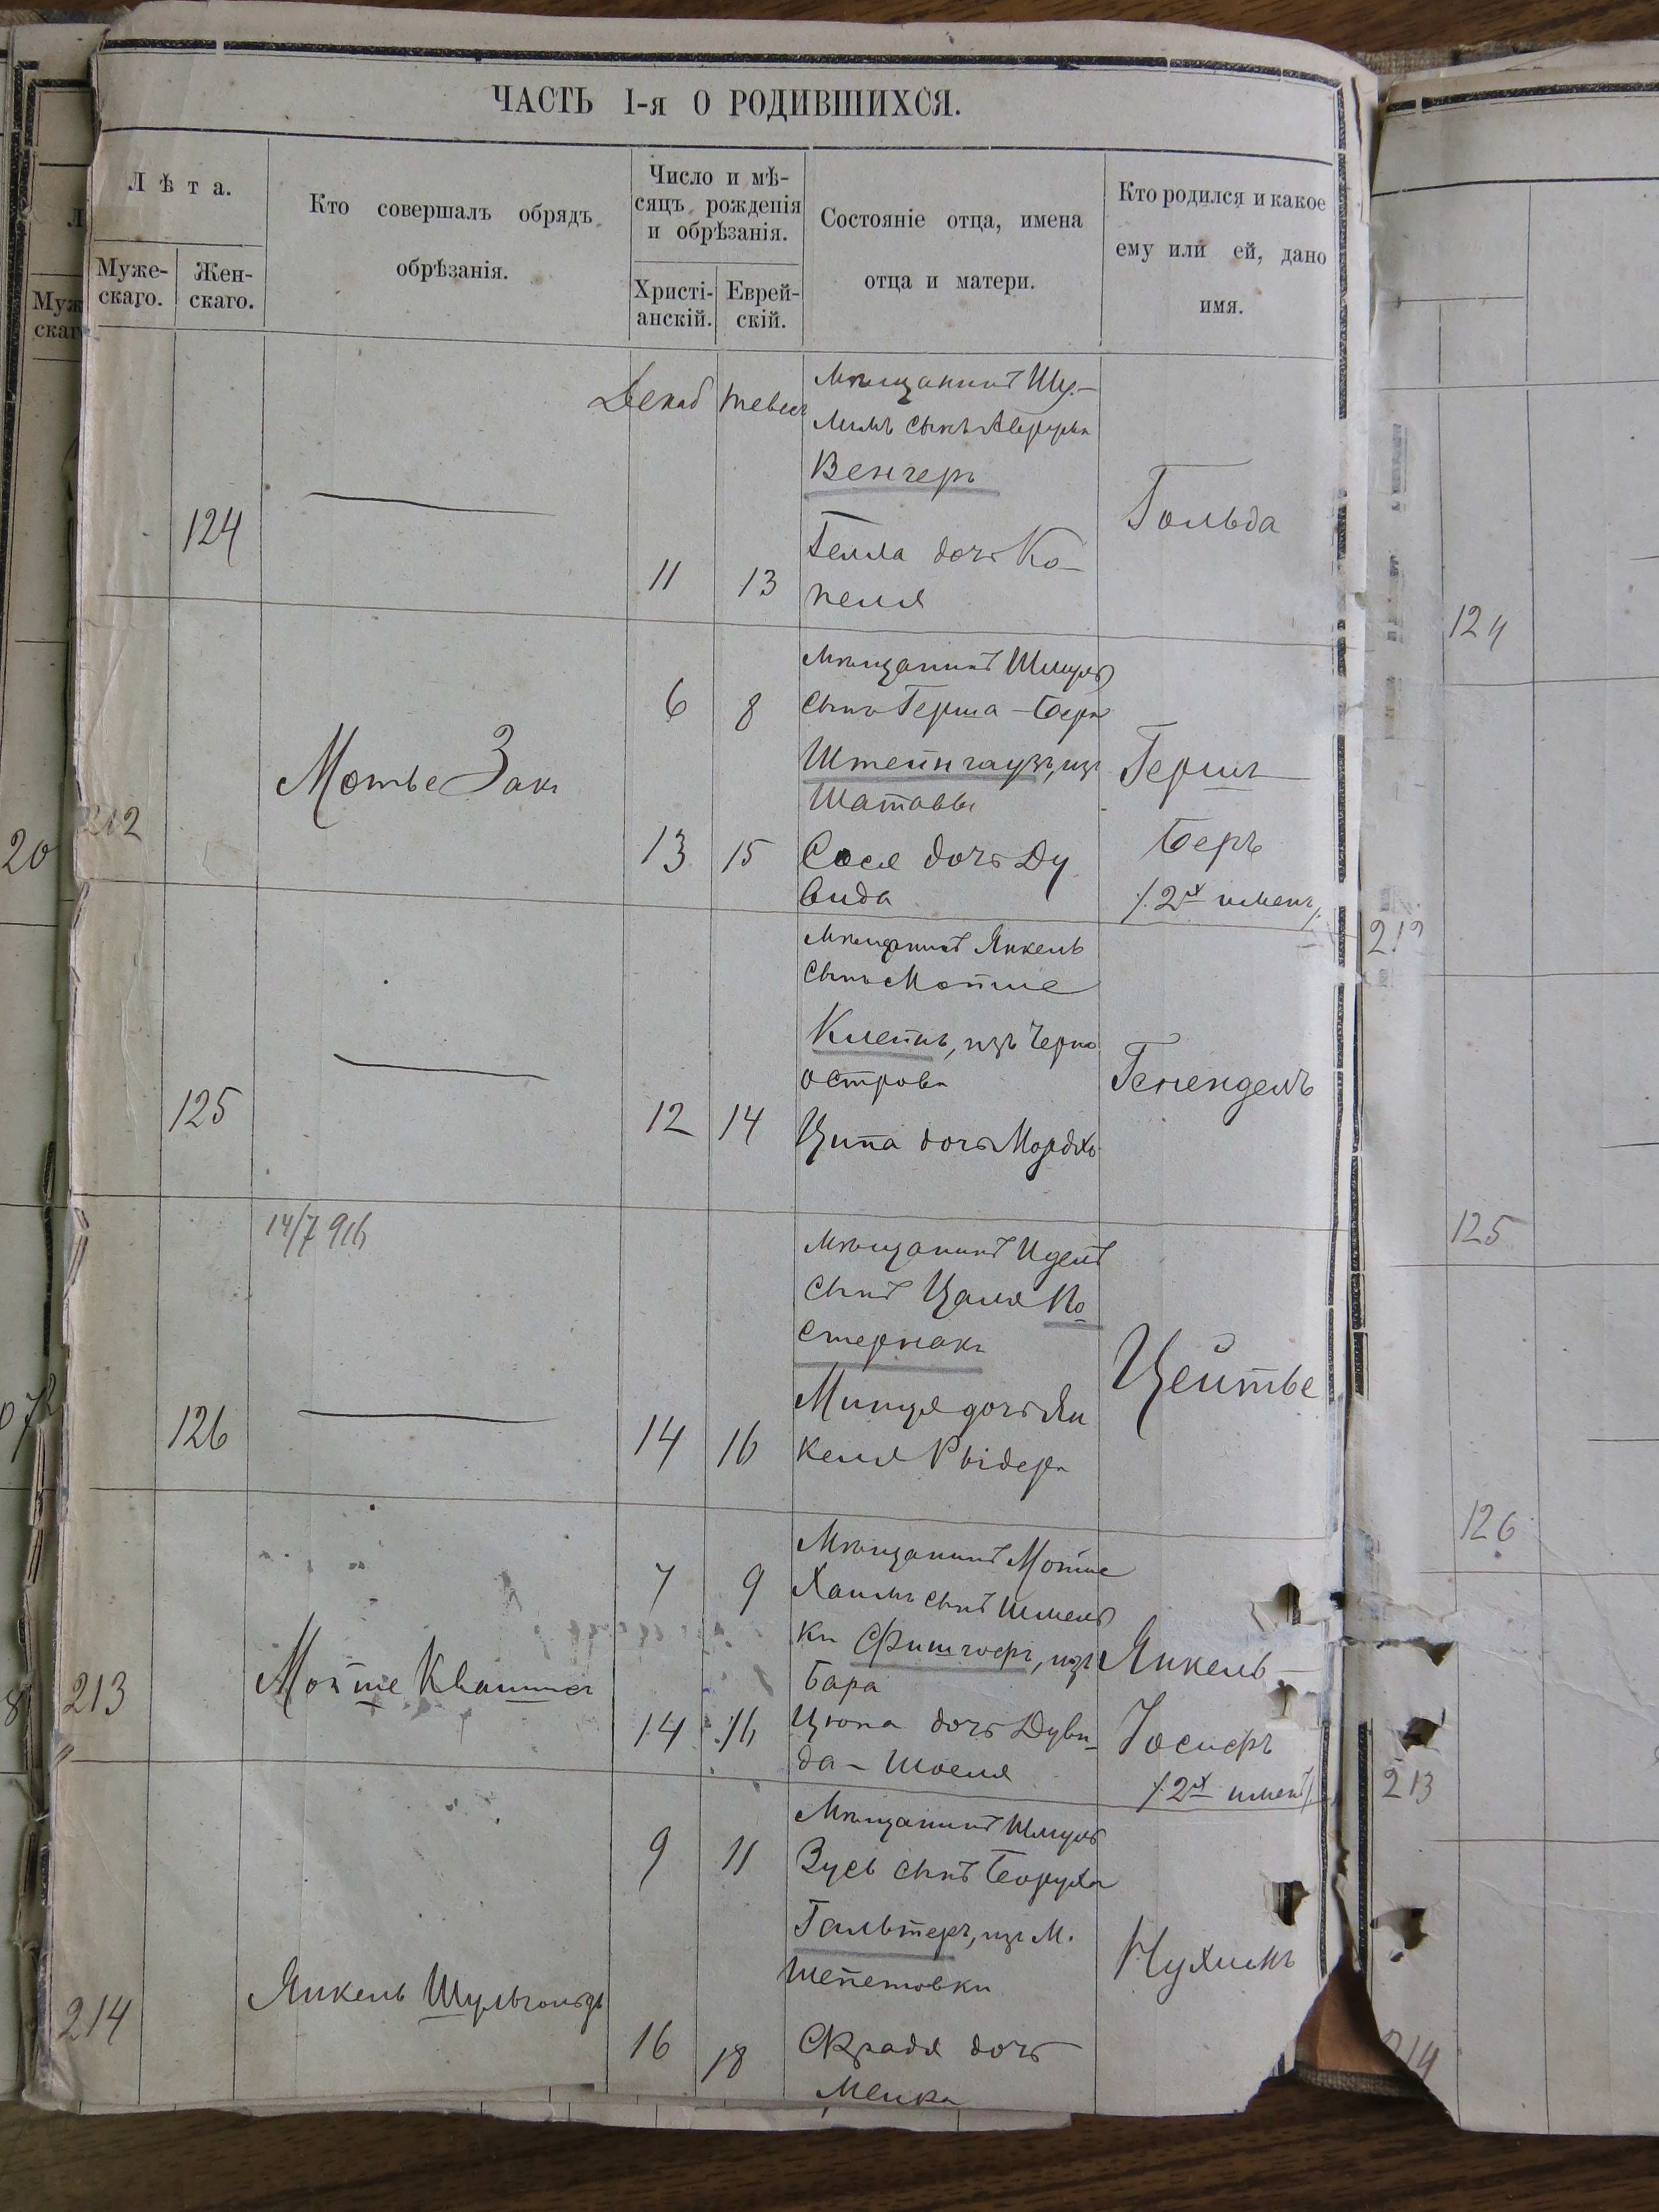 ЧАСТЬ I-я О РОДИВШИХСЯ.
Лѣта.
Муже-
скаго.
Жен-
скаго.
Кто совершалъ обрядъ
обрѣзанія.
Число и мѣ-
сяцъ рожденія
и обрѣзанія.
Христі-
анскій.
Еврей-
скій.
Состояніе отца, имена
отца и матери.
Кто родился и какое
ему или ей, дано
имя.
124
Декаб
11
13
Мѣщанинъ Шу-
лимъ сынъ Аврума
Венгеръ
Гелла дочь Ко-
пеля
Гольда
124
212
Мотье Закъ
6
8
13
15
Мѣщанинъ Шмуль
сынъ Герша-Бера
Штейнгаузъ, изъ
Шатавы
Сося дочь Ду
вида
Гершъ
Беръ
/.2хъ именъ/.
212
125
12
14
Мѣщанинъ Янкель
сынъ Мотте
Клейнъ, изъ Черно
острова
Ципа дочь Мордхъ
Генендель
125
14/7 916
126
14
16
Мѣщанинъ Идель
сынъ Цаля Па
стернакъ
Минця дочь Ян
келя Рыдера
Цейтье
126
213
7
9
14
16
Мѣщанинъ Мотте
Хаимъ сынъ Шмель
ки Фишгофъ, изъ
Бара
Цюпа дочь Дуви-
да-Шоеля
Янкель-
Іосифъ
/.2хъ именъ/.
213
214
Янкель Шульгольдъ
9
11
16
18
Мѣщанинъ Шмуль
Зусь сынъ Боруха
Гальтеръ, изъ М.
Шепетовки
Фрадя дочь
Нухимъ
20